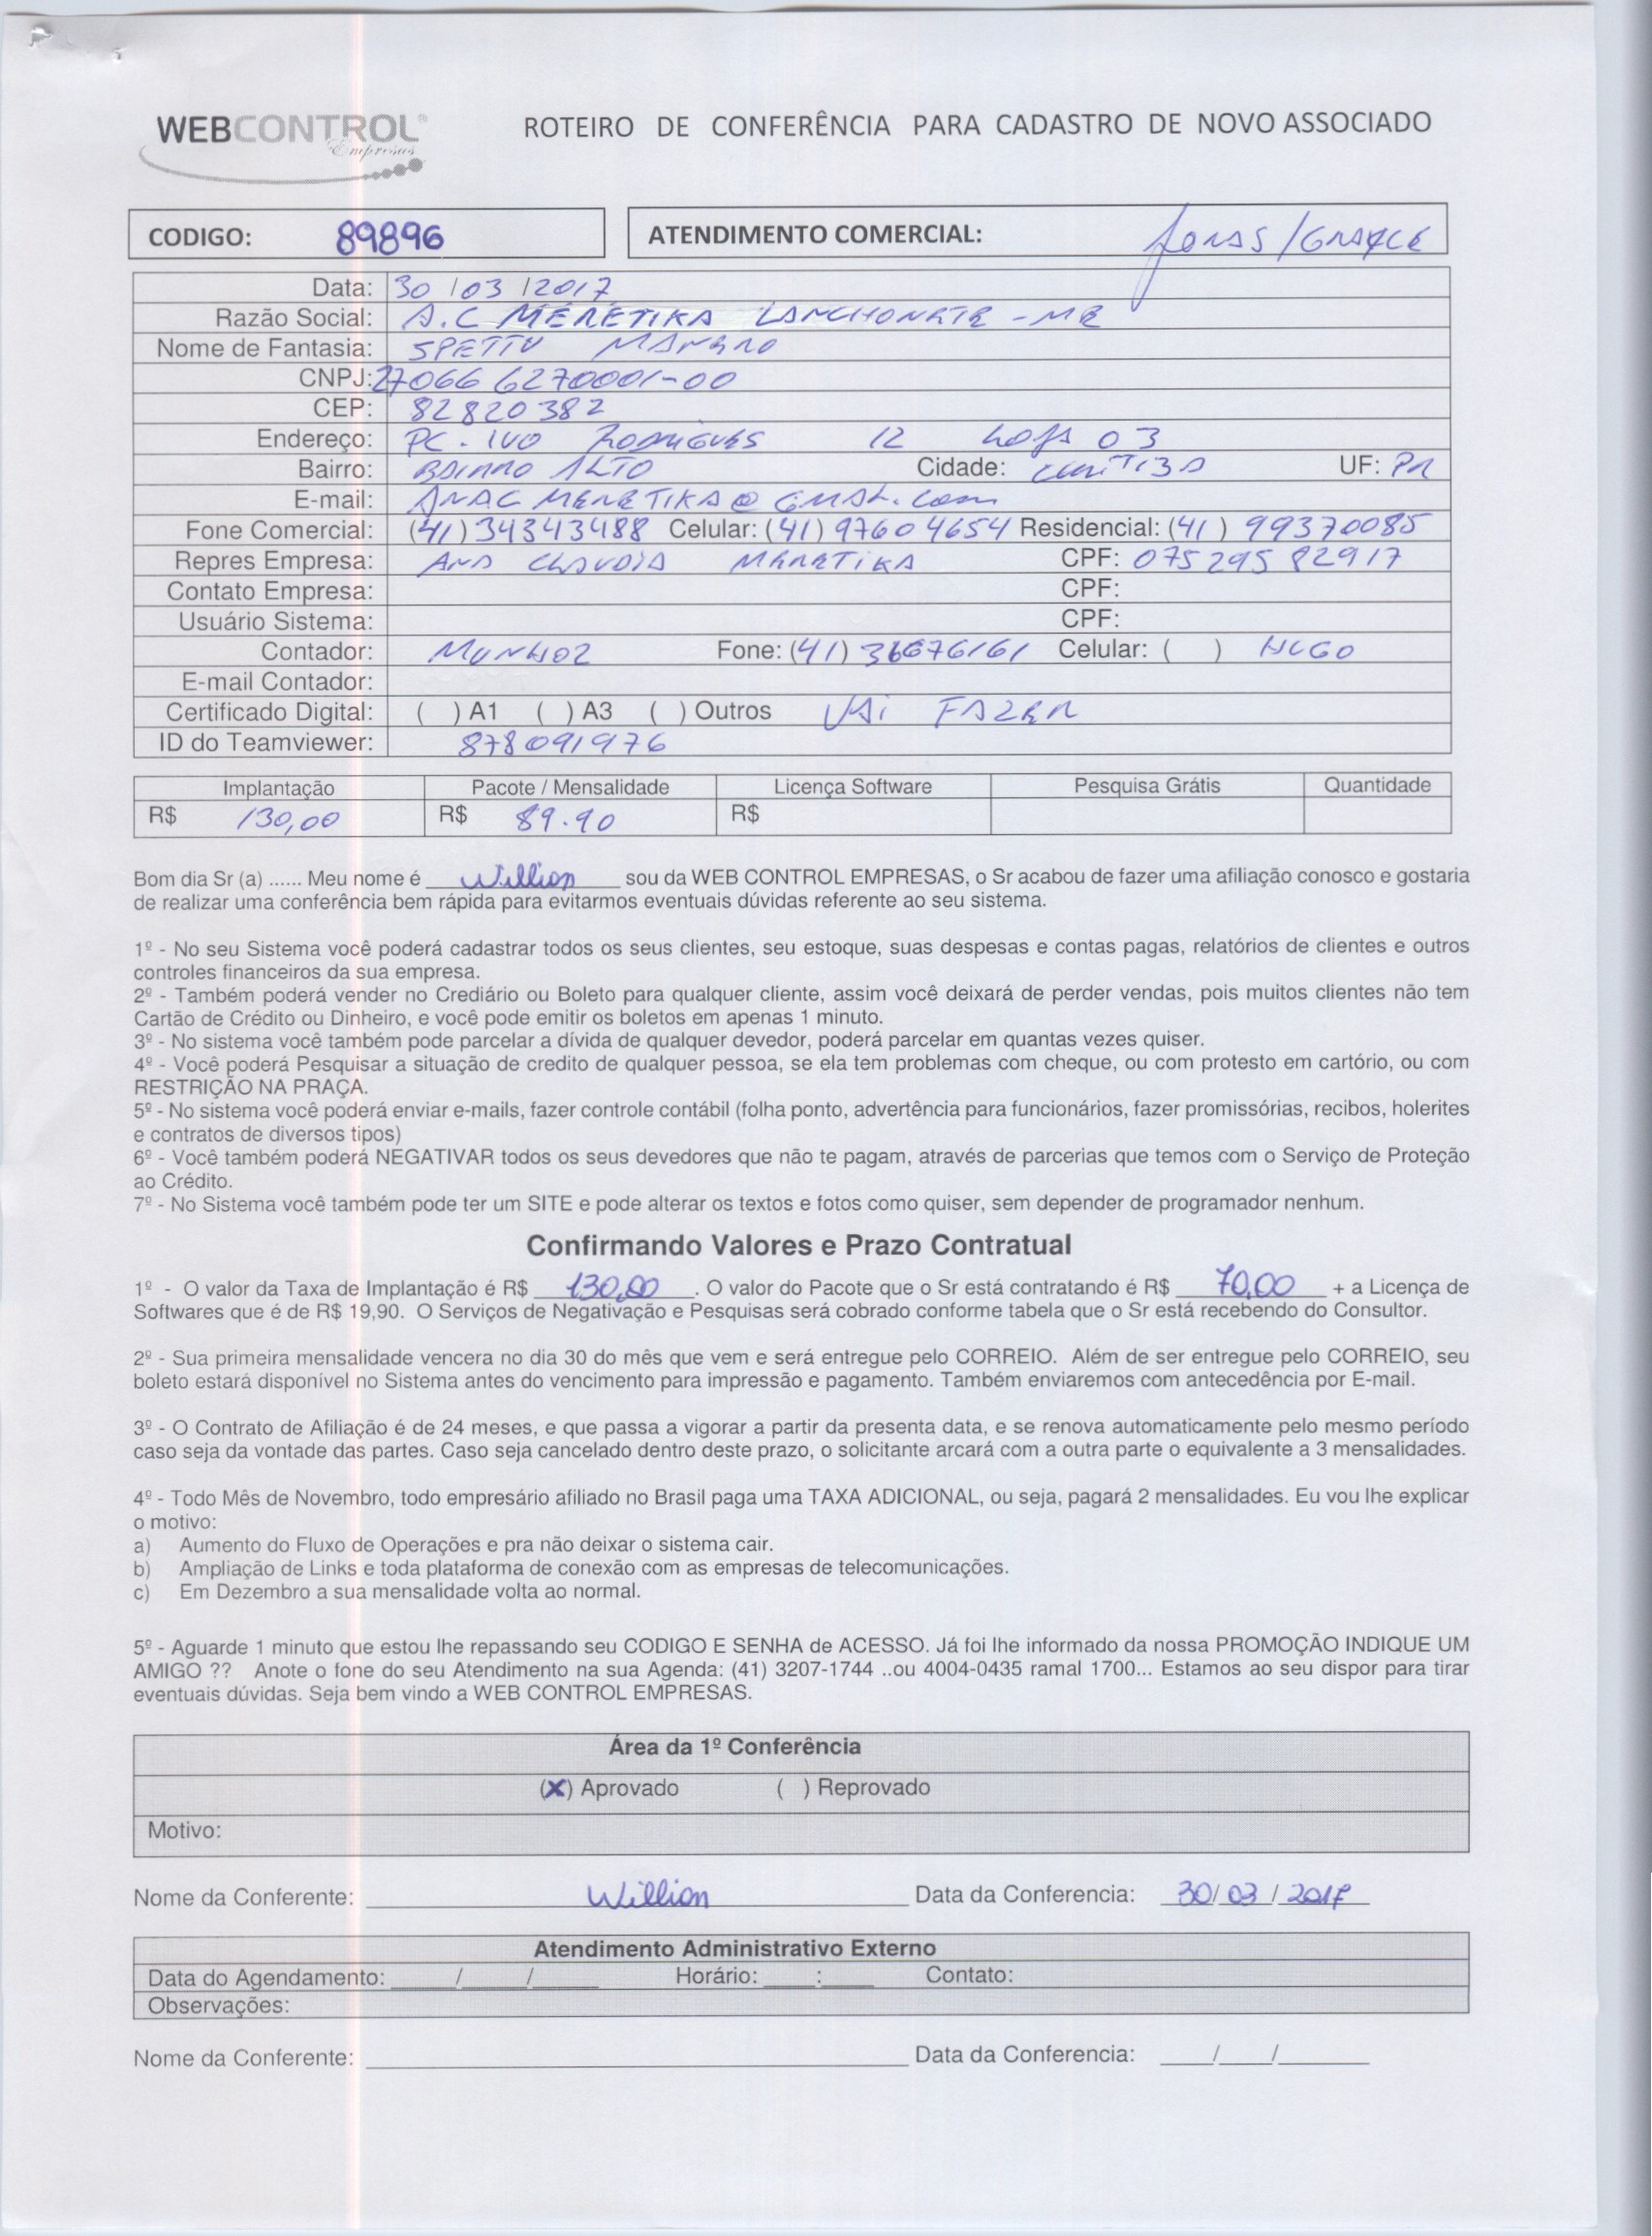 WEBCONTROL Empresas
ROTEIRO DE CONFERÊNCIA PARA CADASTRO DE NOVO ASSOCIADO
CODIGO: 89896 ATENDIMENTO COMERCIAL: Jonas/
Data: 30/03/2017
Razão Social: A.C MERETIKA LANCHONETE - ME
Nome de Fantasia: SPETTU
CNPJ: 27066 6270001-00
CEP: 82820382
Endereço: PC. IVO RODRIGUES 12 LOJA 03
Bairro: BAIRRO ALTO Cidade: CURITIBA UF: PR
E-mail: ANAC MERETIKA@GMAIL.COM
Fone Comercial: (41) 34343488 Celular: (41) 97604654 Residencial: (41 ) 99370085
Repres Empresa: ANA CLAUDIA MERETIKA CPF: 075 295 82917
Contato Empresa: CPF:
Usuário Sistema: CPF:
Contador: MUNHOZ Fone: (41) 36676161 Celular: ( ) HUGO
E-mail Contador:
Certificado Digital: ( ) A1 ( ) A3 ( ) Outros VAI FAZER
ID do Teamviewer: 878091976
Implantação Pacote / Mensalidade Licença Software Pesquisa Grátis Quantidade
R$ 130,00 R$ 89.90 R$
Bom dia Sr (a) ...... Meu nome é Willian sou da WEB CONTROL EMPRESAS, o Sr acabou de fazer uma afiliação conosco e gostaria
de realizar uma conferência bem rápida para evitarmos eventuais dúvidas referente ao seu sistema.
1º - No seu Sistema você poderá cadastrar todos os seus clientes, seu estoque, suas despesas e contas pagas, relatórios de clientes e outros
controles financeiros da sua empresa.
2º - Também poderá vender no Crediário ou Boleto para qualquer cliente, assim você deixará de perder vendas, pois muitos clientes não tem
Cartão de Crédito ou Dinheiro, e você pode emitir os boletos em apenas 1 minuto.
3º - No sistema você também pode parcelar a dívida de qualquer devedor, poderá parcelar em quantas vezes quiser.
4º - Você poderá Pesquisar a situação de credito de qualquer pessoa, se ela tem problemas com cheque, ou com protesto em cartório, ou com
RESTRIÇÃO NA PRAÇA.
5º - No sistema você poderá enviar e-mails, fazer controle contábil (folha ponto, advertência para funcionários, fazer promissórias, recibos, holerites
e contratos de diversos tipos)
6º - Você também poderá NEGATIVAR todos os seus devedores que não te pagam, através de parcerias que temos com o Serviço de Proteção
ao Crédito.
7º - No Sistema você também pode ter um SITE e pode alterar os textos e fotos como quiser, sem depender de programador nenhum.
Confirmando Valores e Prazo Contratual
1º - O valor da Taxa de Implantação é R$ 130,00 . O valor do Pacote que o Sr está contratando é R$ 70,00 + a Licença de
Softwares que é de R$ 19,90. O Serviços de Negativação e Pesquisas será cobrado conforme tabela que o Sr está recebendo do Consultor.
2º - Sua primeira mensalidade vencera no dia 30 do mês que vem e será entregue pelo CORREIO. Além de ser entregue pelo CORREIO, seu
boleto estará disponível no Sistema antes do vencimento para impressão e pagamento. Também enviaremos com antecedência por E-mail.
3º - O Contrato de Afiliação é de 24 meses, e que passa a vigorar a partir da presenta data, e se renova automaticamente pelo mesmo período
caso seja da vontade das partes. Caso seja cancelado dentro deste prazo, o solicitante arcará com a outra parte o equivalente a 3 mensalidades.
4º - Todo Mês de Novembro, todo empresário afiliado no Brasil paga uma TAXA ADICIONAL, ou seja, pagará 2 mensalidades. Eu vou lhe explicar
o motivo:
a) Aumento do Fluxo de Operações e pra não deixar o sistema cair.
b) Ampliação de Links e toda plataforma de conexão com as empresas de telecomunicações.
c) Em Dezembro a sua mensalidade volta ao normal.
5º - Aguarde 1 minuto que estou lhe repassando seu CODIGO E SENHA de ACESSO. Já foi lhe informado da nossa PROMOÇÃO INDIQUE UM
AMIGO ?? Anote o fone do seu Atendimento na sua Agenda: (41) 3207-1744 ..ou 4004-0435 ramal 1700... Estamos ao seu dispor para tirar
eventuais dúvidas. Seja bem vindo a WEB CONTROL EMPRESAS.
Área da 1º Conferência
(X) Aprovado ( ) Reprovado
Motivo:
Nome da Conferente: Willian Data da Conferencia: 30/03/2017
Atendimento Administrativo Externo
Data do Agendamento: / / Horário: : Contato:
Observações:
Nome da Conferente: Data da Conferencia: / /